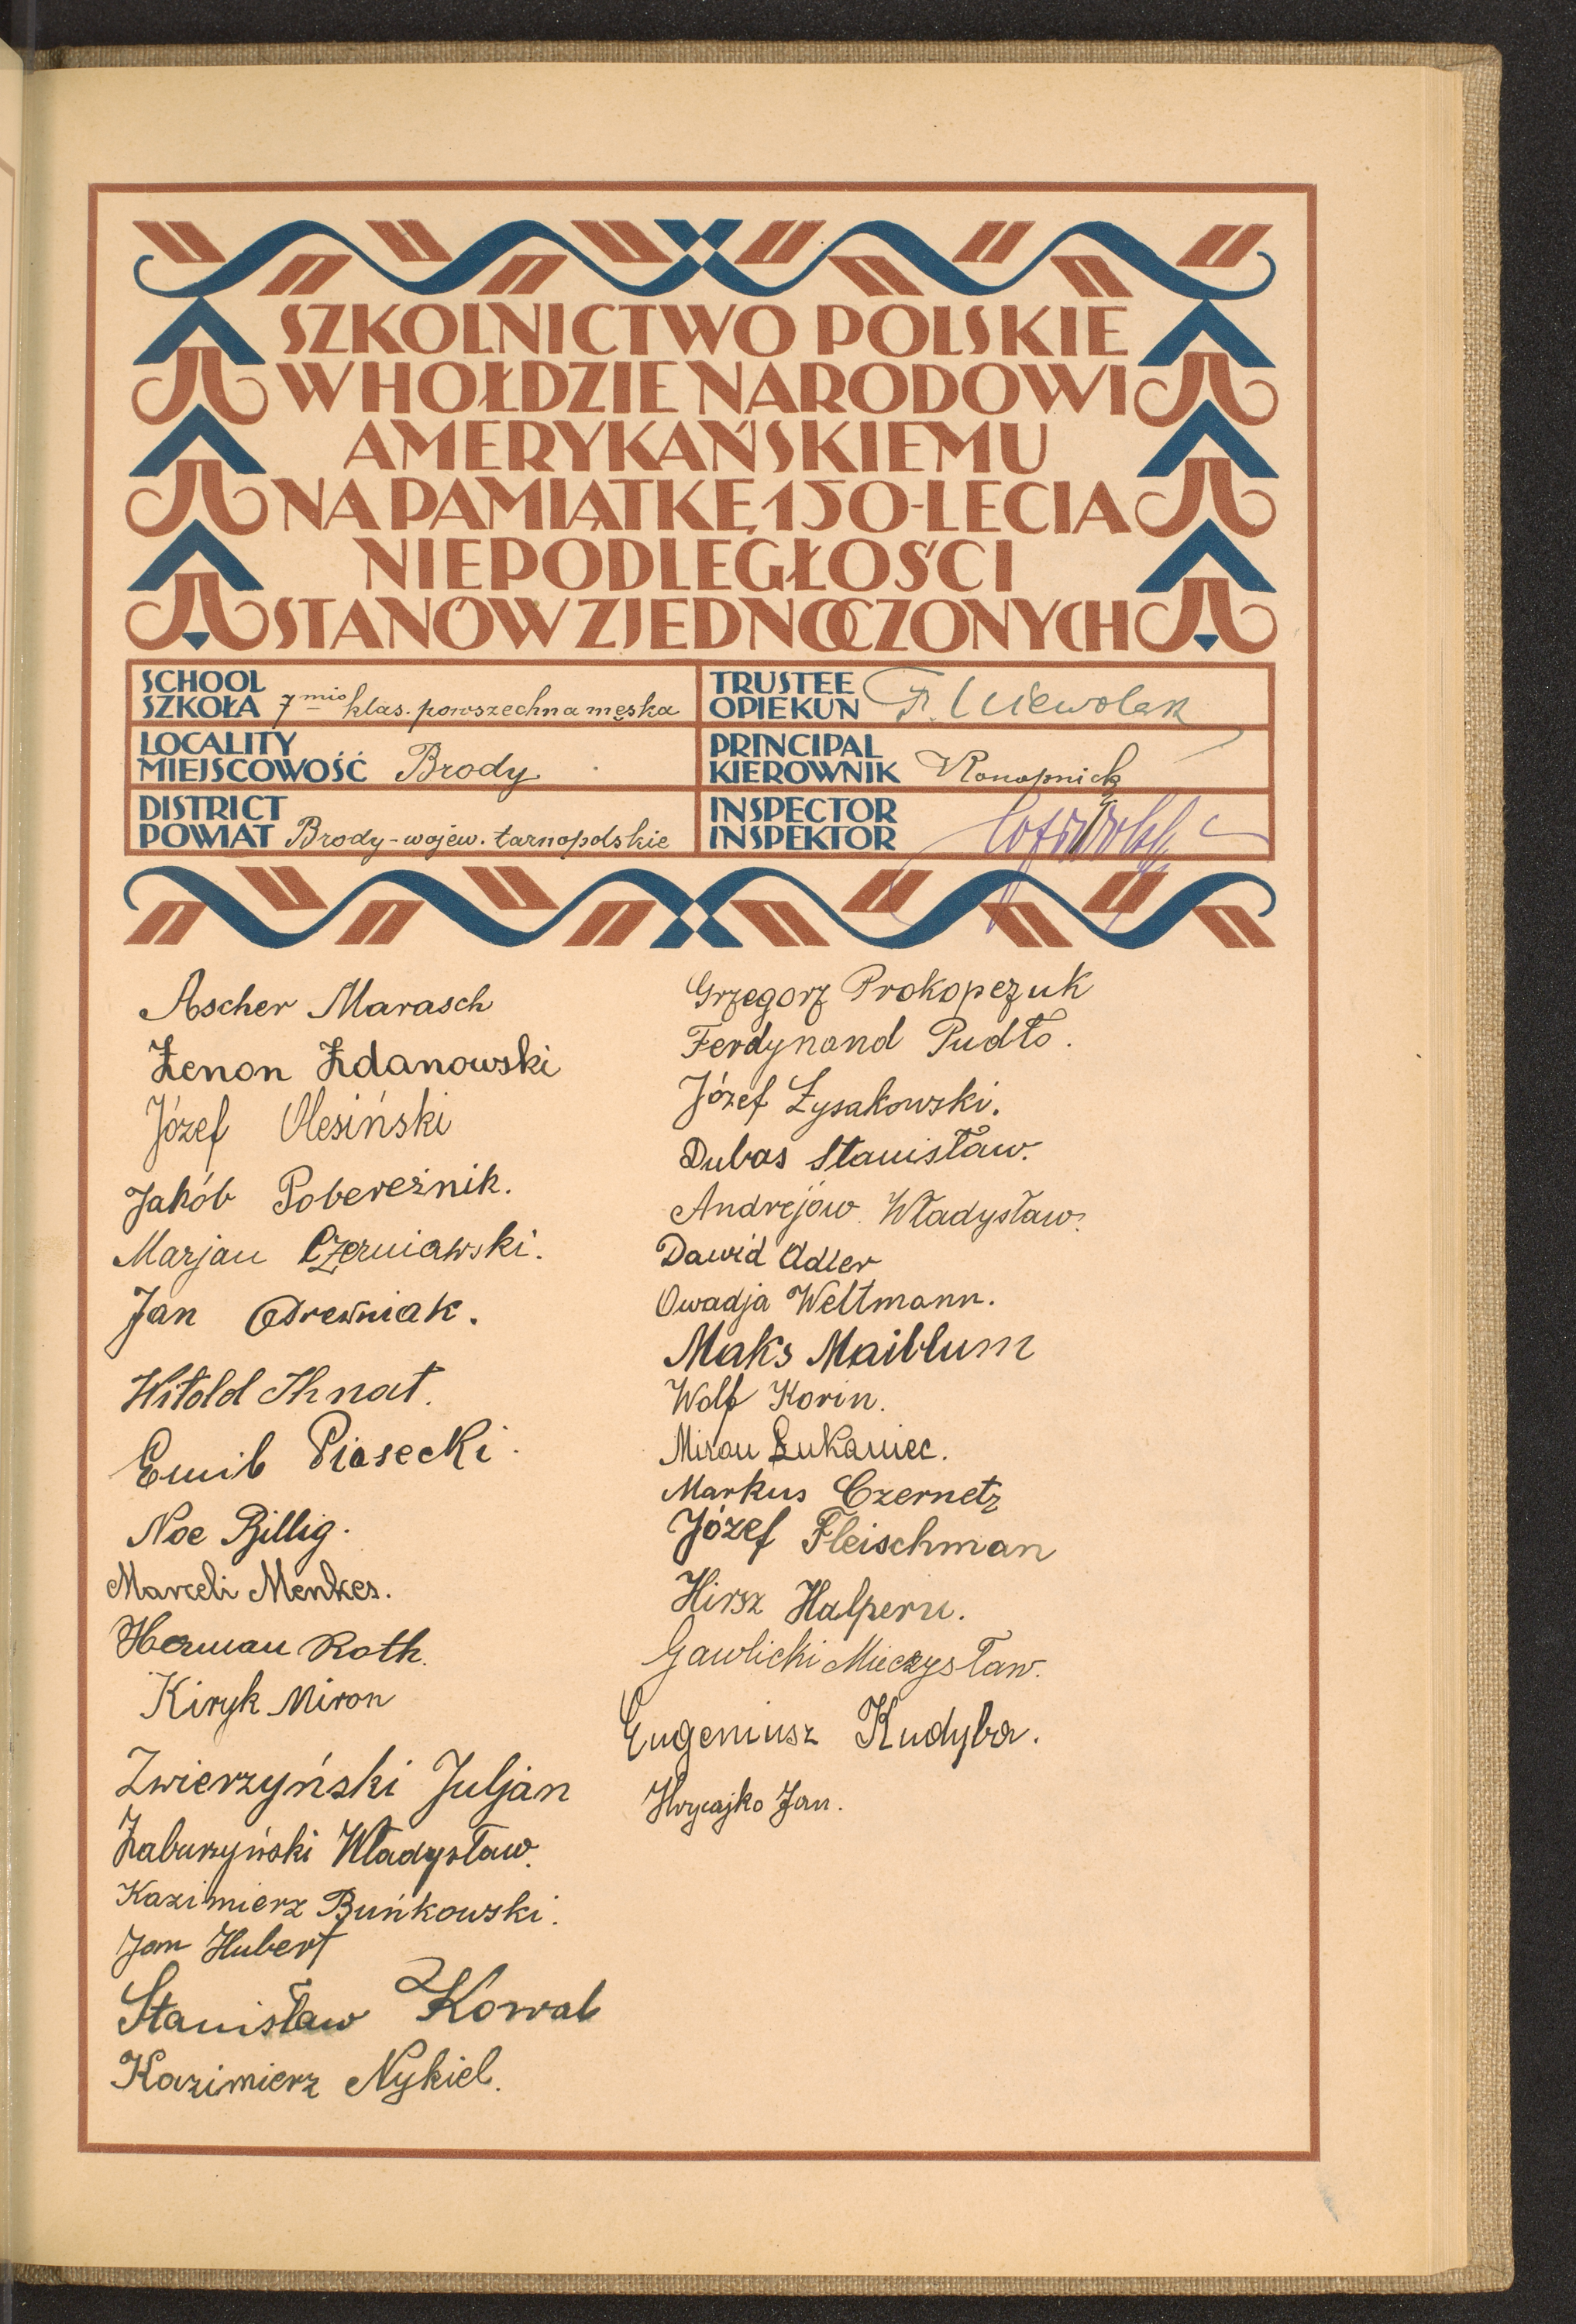 SZKOLNICTWO POLSKIE
W HOŁDZIE NARODOWI
AMERYKAŃSKIEMU
NA PAMIĄTKĘ 150-LECIA
NIEPODLEGŁOŚCI
STANÓW ZJEDNOCZONYCH
SCHOOL
SZKOŁA 7mio klas. powszechna męska
LOCALITY
MIEJSCOWOŚĆ Brody
DISTRICT
POWIAT Brody-wojew. tarnopolskie
TRUSTEE
OPIEKUN
PRINCIPAL
KIEROWNIK
INSPECTOR
INSPEKTOR
Ascher Marasch
Zenon Zdanowski
Józef Olesiński
Jakób Pobereźnik.
Marjan Czerniawski.
Jan Odrewniak.
Witold Ihnat.
Emil Piasecki.
Noe Billig.
Marceli Menkes.
Herman Roth.
Kiryk Miron
Zwierzyński Juljan
Zaburzyński Władysław.
Kazimierz Buńkowski.
Jan Hubert
Stanisław Kowal
Kazimierz Nykiel.
Grzegorz Prokopczuk
Ferdynand Pudło.
Józef Łysakowski.
Dubas Stanisław.
Andrejów. Władysław.
Dawid Adler
Owadja Weltmann.
Maks Maiblum
Wolf Korin.
Miron Łukaniec.
Markus Czernetz
Józef Fleischman
Hirsz Halpern.
Gawlicki Mieczysław.
Eugeniusz Kudyba.
Hrycajko Jan.